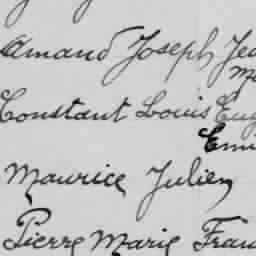 Amand Joseph Jea
Constant Louis Eug
Maurice Julien
Pierre Marie Fran